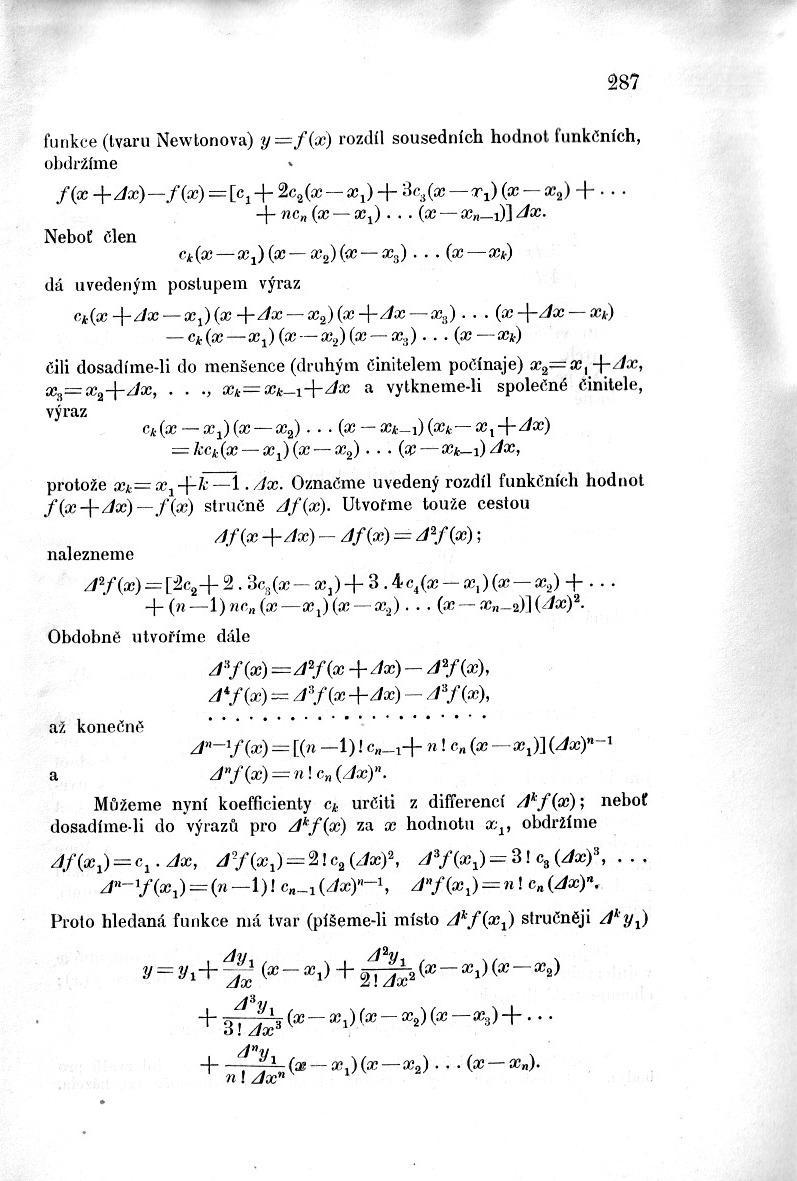 287
funkce (tvaru Newtonova) y = f(x) rozdíl sousedních hodnot funkčních,
obdržíme
f(x + Δx) — f(x) = [c₁ + 2c₂(x — x₁) + 3c₃(x — x₁)(x — x₂) + . . .
+ ncₙ(x — x₁) . . . (x — xₙ₋₁)] Δx.
Neboť člen
cₖ(x — x₁)(x — x₂)(x — x₃) . . . (x — xₖ)
dá uvedeným postupem výraz
cₖ(x + Δx — x₁)(x + Δx — x₂)(x + Δx — x₃) . . . (x + Δx — xₖ)
— cₖ(x — x₁)(x — x₂)(x — x₃) . . . (x — xₖ)
čili dosadíme-li do menšence (druhým činitelem počínaje) x₂ = x₁ + Δx,
x₃ = x₂ + Δx, . . ., xₖ = xₖ₋₁ + Δx a vytkneme-li společné činitele,
výraz
cₖ(x — x₁)(x — x₂) . . . (x — xₖ₋₁)(xₖ — x₁ + Δx)
= kcₖ(x — x₁)(x — x₂) . . . (x — xₖ₋₁) Δx,
protože xₖ = x₁ + k̅ ̅—̅ ̅1̅ . Δx. Označme uvedený rozdíl funkčních hodnot
f(x + Δx) — f(x) stručně Δf(x). Utvořme touže cestou
Δf(x + Δx) — Δf(x) = Δ²f(x);
nalezneme
Δ²f(x) = [2c₂ + 2 . 3c₃(x — x₁) + 3 . 4c₄(x — x₁)(x — x₂) + . . .
+ (n — 1) ncₙ(x — x₁)(x — x₂) . . . (x — xₙ₋₂)] (Δx)².
Obdobně utvoříme dále
Δ³f(x) = Δ²f(x + Δx) — Δ²f(x),
Δ⁴f(x) = Δ³f(x + Δx) — Δ³f(x),
. . . . . . . . . . . . . . . . . . . . .
až konečně
Δⁿ⁻¹f(x) = [(n — 1)! cₙ₋₁ + n! cₙ(x — x₁)] (Δx)ⁿ⁻¹
a Δⁿf(x) = n! cₙ(Δx)ⁿ.
Můžeme nyní koefficienty cₖ určiti z differencí Δᵏf(x); neboť
dosadíme-li do výrazů pro Δᵏf(x) za x hodnotu x₁, obdržíme
Δf(x₁) = c₁ . Δx, Δ²f(x₁) = 2! c₂(Δx)², Δ³f(x₁) = 3! c₃(Δx)³, . . .
Δⁿ⁻¹f(x₁) = (n — 1)! cₙ₋₁(Δx)ⁿ⁻¹, Δⁿf(x₁) = n! cₙ(Δx)ⁿ.
Proto hledaná funkce má tvar (píšeme-li místo Δᵏf(x₁) stručněji Δᵏy₁)
y = y₁ + Δy₁/Δx (x — x₁) + Δ²y₁/2! Δx² (x — x₁)(x — x₂)
+ Δ³y₁/3! Δx³ (x — x₁)(x — x₂)(x — x₃) + . . .
+ Δⁿy₁/n! Δxⁿ (x — x₁)(x — x₂) . . . (x — xₙ).